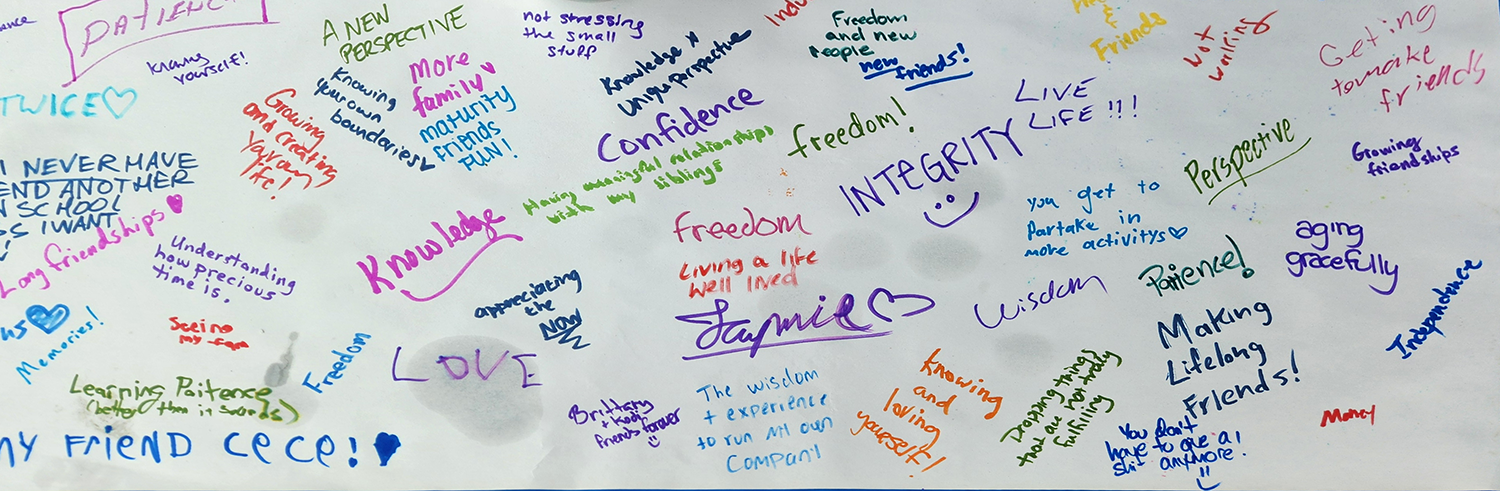 PATIENCE
Knowing
yourself!
TWICE
A NEW
PERSPECTIVE
not stressing
the small
stuff
Freedom
and new
people
new
friends!
&
Friends
Not
working
Geting
tomake
friends
More
family
Knowing
your own
boundaries
maturity
friends
FUN!
Growing
and creating
life!
Knowledge
unique perspective
Confidence
freedom!
LIVE
LIFE!!!
INTEGRITY
Perspective
Growing
friendships
I NEVER HAVE
END ANOTHER
N SCHOOL
SS I WANT
Having meaningful relationships
with my siblings
Long friendships
Understanding
how precious
time is.
Knowledge
Freedom
Living a life
well lived
You get to
Partake in
more activitys
aging
gracefully
Patience!
Wisdom
appreciating
the
NOW
us
Memories!
Seeing
Freedom
LOVE
Jaymie
Independence
Making
Lifelong
Friends!
Learning Paitence
(better than it sounds)
Brittany
+ Kody
friends forever
The wisdom
+ experience
to run my own
Company
Knowing
and
loving
yourself!
Dropping things
that are not truly
fulfilling
You don't
have to give a
shit anymore!
Money
MY FRIEND CECE!